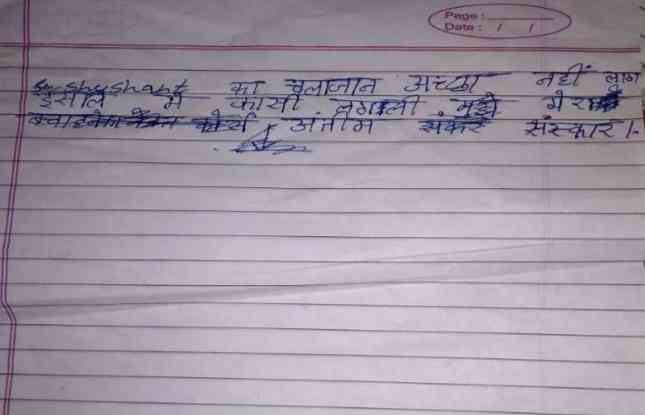 Page :
Date : / /
Sushant का चलाजान अच्छा नहीं लाग
इसलि मै फासी लगाली मुझे मेरा
कार्य अंतीम संस्कार ।.